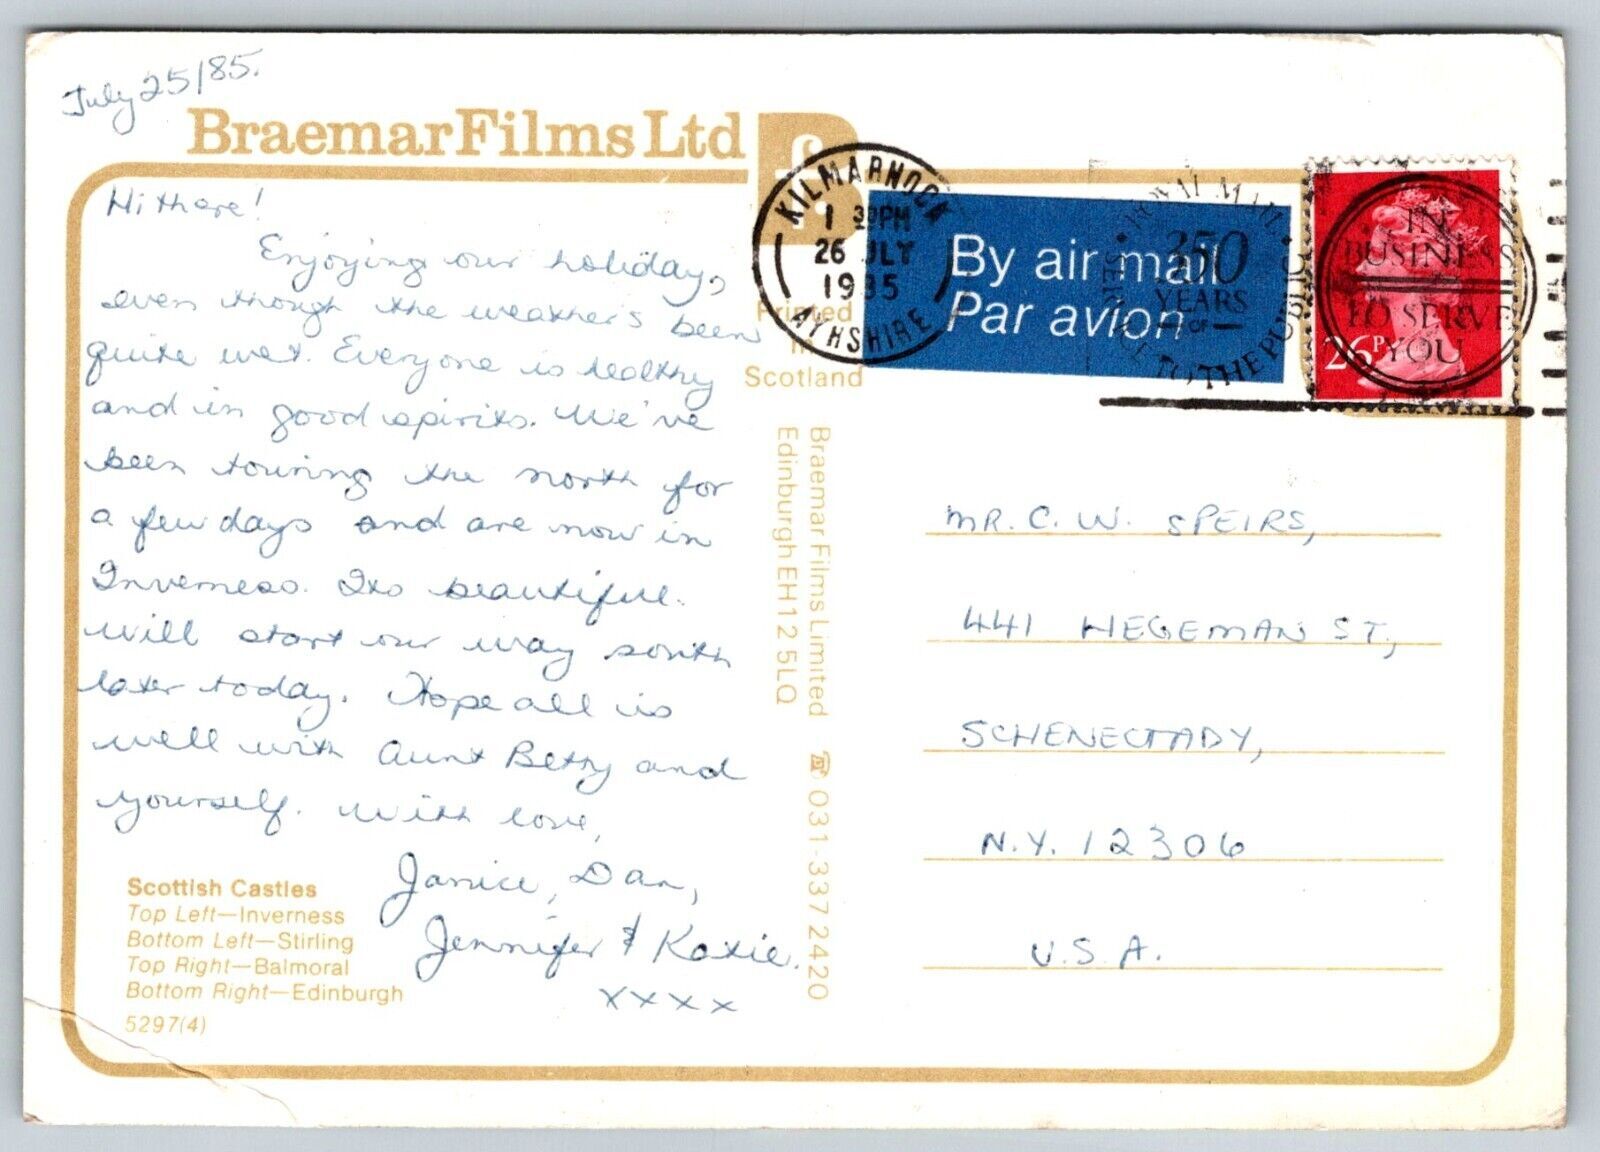 July 25/85.
Braemar Films Ltd
Hi there!
Enjoying our holiday,
even though the weather's been
quite wet. Everyone is healthy
and in good spirits. We've
been touring the north for
a few days and are now in
Inverness. Its beautiful.
Will start our way south
later today. Hope all is
well with Aunt Betty and
yourself. With love,
Janice, Dan,
Jennifer & Katie.
xxxx
Scottish Castles
Top Left—Inverness
Bottom Left—Stirling
Top Right—Balmoral
Bottom Right—Edinburgh
5297(4)
Printed
in
Scotland
Braemar Films Limited ☎ 031-337 2420
Edinburgh EH12 5LQ
KILMARNOCK
1 30PM
26 JLY
1985
AYRSHIRE
By air mail
Par avion
ROYAL MAIL
350
YEARS
OF
SERVICE TO THE PUBLIC
IN
BUSINESS
TO SERVE
YOU
26P
MR. C. W. SPEIRS,
441 HEGEMAN ST,
SCHENECTADY,
N.Y. 12306
U.S.A.